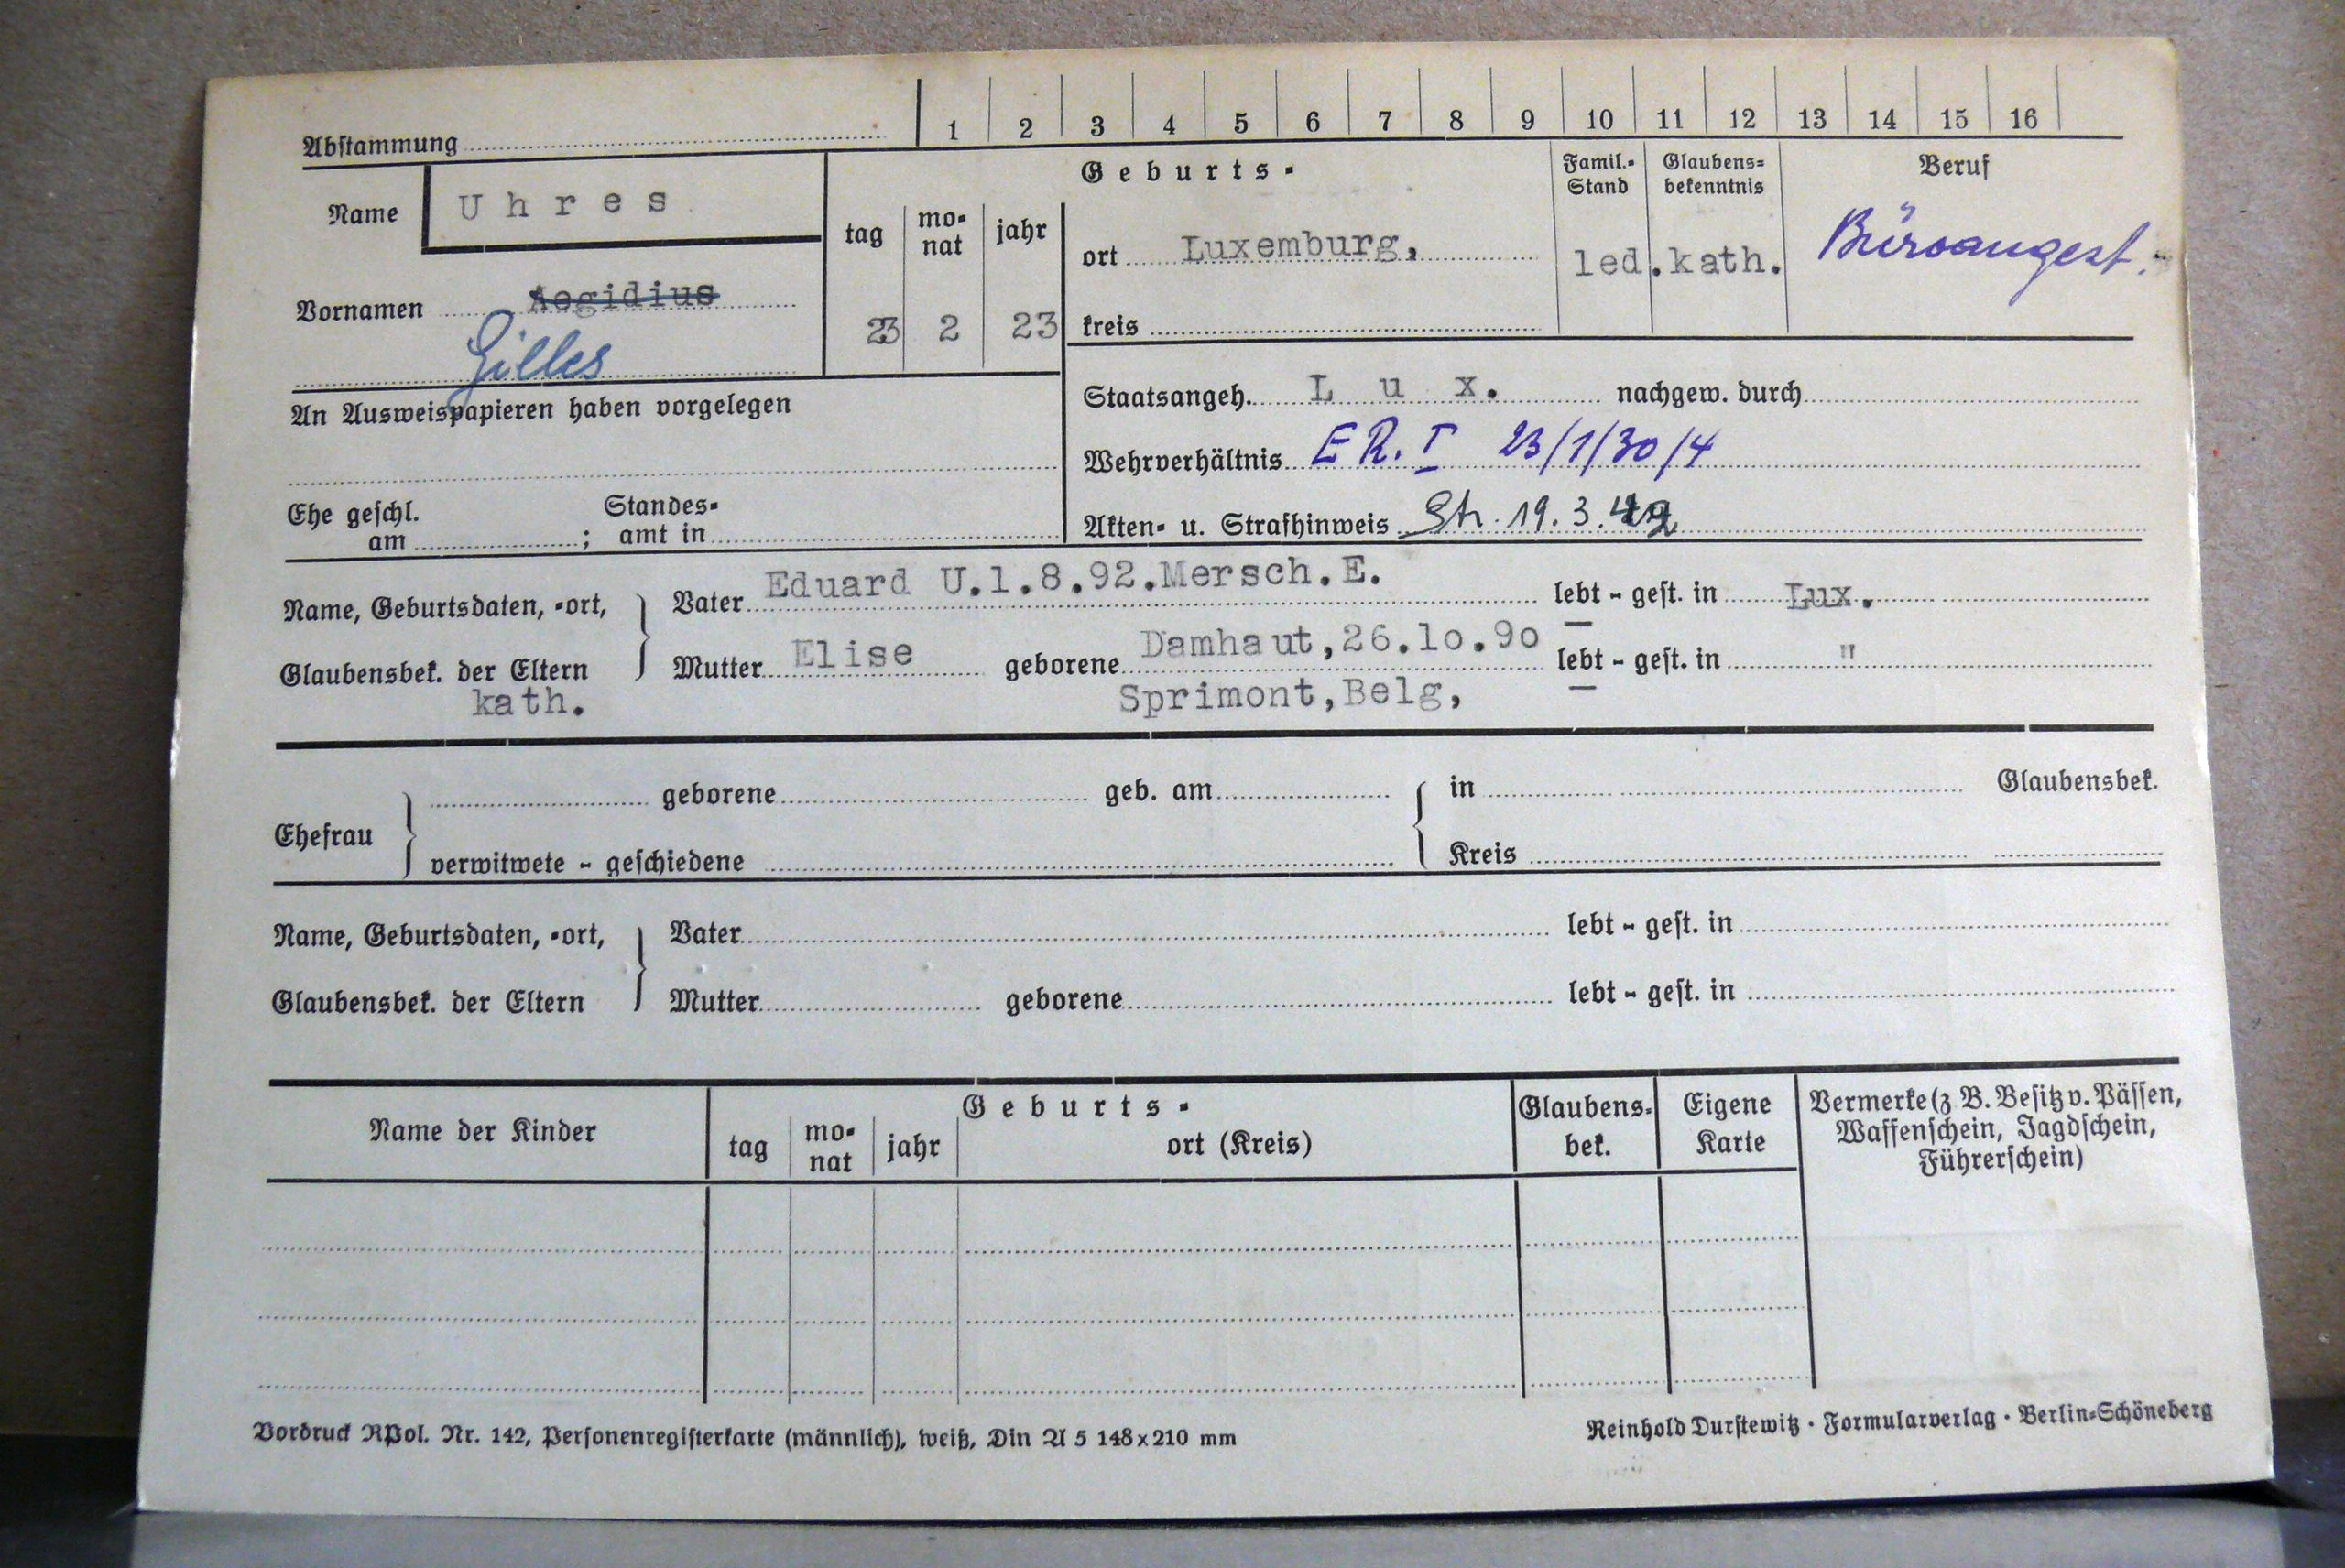 Abstammung 1 2 3 4 5 6 7 8 9 10 11 12 13 14 15 16
Name Uhres
Vornamen Aegidius
Gilles
Geburts-
tag monat jahr
23 2 23
ort Luxemburg,
kreis
Famil.-Stand
led.
Glaubens-bekenntnis
kath.
Beruf
Büroangest.
An Ausweispapieren haben vorgelegen
Ehe geschl. am ; Standes-amt in
Staatsangeh. Lux. nachgew. durch
Wehrverhältnis E R. I 23/1/30/4
Akten- u. Strafhinweis Sh. 19.3.
Name, Geburtsdaten, -ort, Vater Eduard U.1.8.92.Mersch.E. lebt - gest. in Lux.
Glaubensbek. der Eltern Mutter Elise geborene Damhaut,26.10.90 lebt - gest. in "
kath. Sprimont,Belg,
Ehefrau geborene geb. am in Glaubensbek.
verwitwete - geschiedene Kreis
Name, Geburtsdaten, -ort, Vater lebt - gest. in
Glaubensbek. der Eltern Mutter geborene lebt - gest. in
Name der Kinder
Geburts-
tag monat jahr ort (Kreis)
Glaubens-bek.
Eigene Karte
Vermerke (z B. Besitz v. Pässen,
Waffenschein, Jagdschein,
Führerschein)
Vordruck RPol. Nr. 142, Personenregisterkarte (männlich), weiß, Din A 5 148x210 mm
Reinhold Durstewitz · Formularverlag · Berlin-Schöneberg